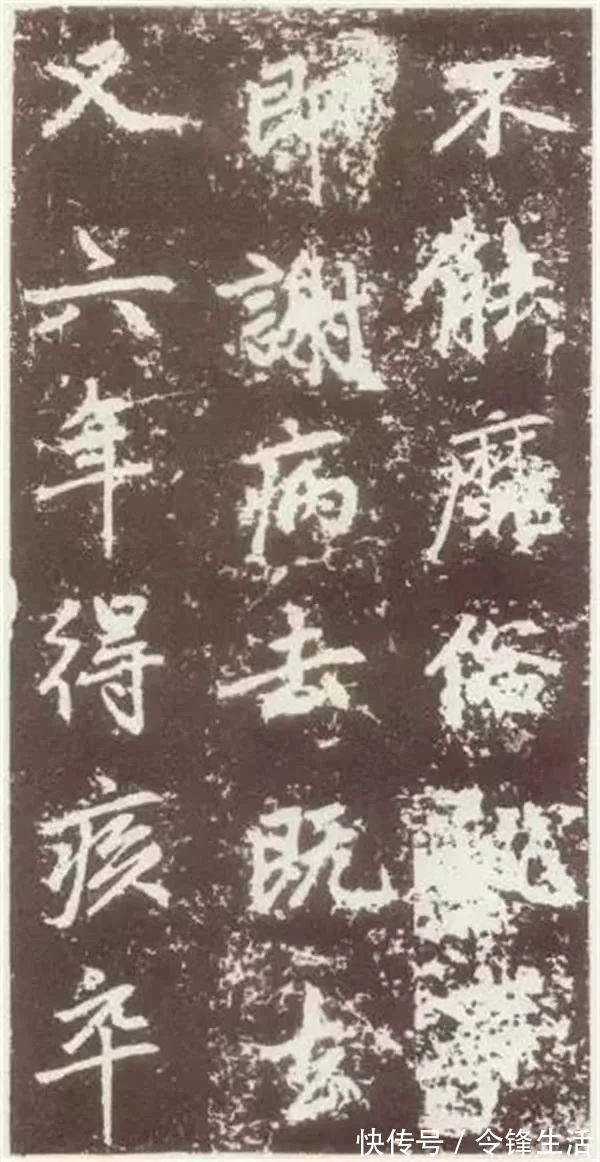 不能靡俗
即謝病去既去
又六年得痎卒
快传号 / 令锋生活